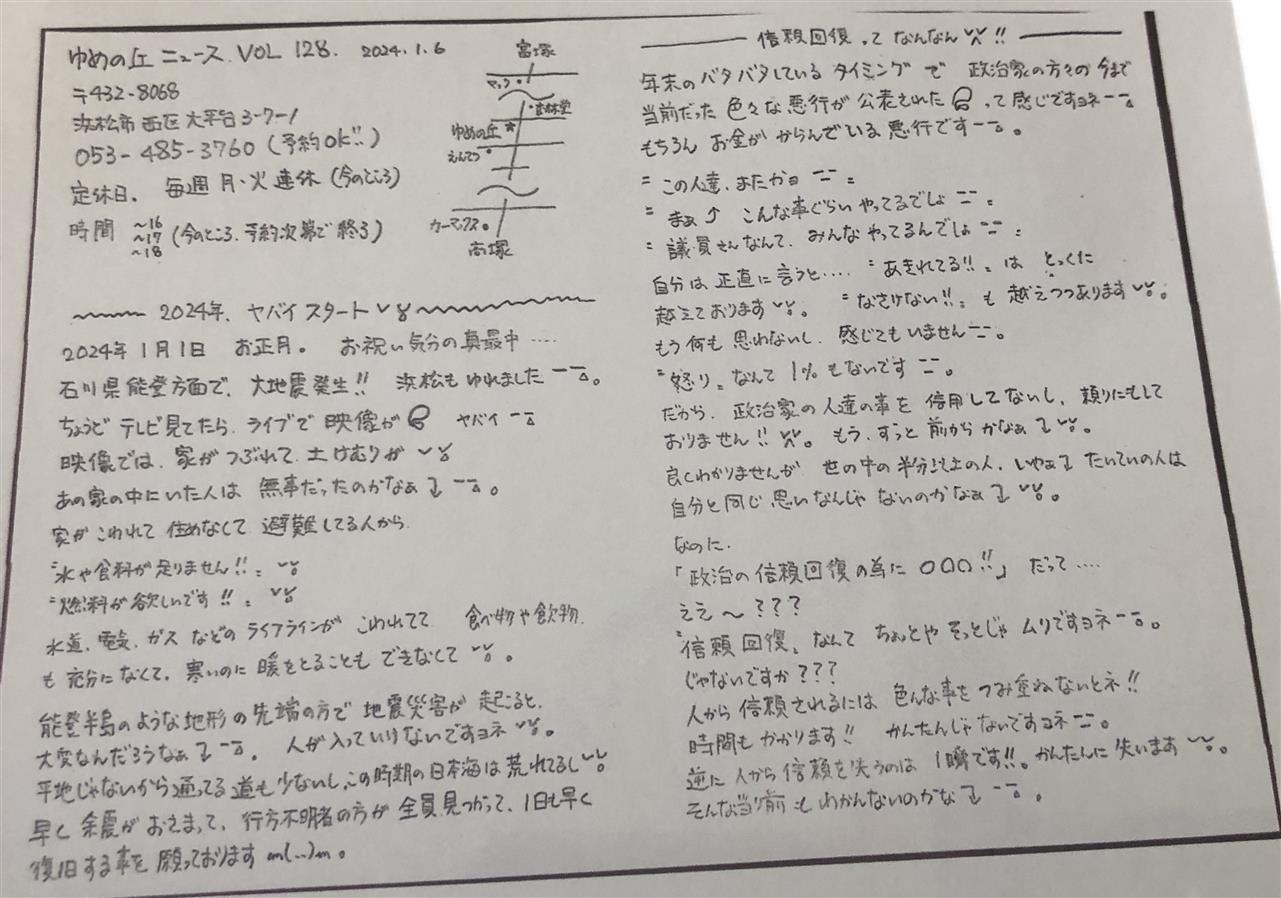 ゆめの丘 ニュース. VOL 128. 2024.1.6
〒432-8068
浜松市 西区 大平台3-7-1
053-485-3760 (予約OK!!)
定休日. 毎週 月・火 連休 (今のところ)
時間 〜16 〜17 〜18 (今のところ. 予約次第で 終る)
富塚
マック
杏林堂
ゆめの丘
えんてつ
カーマックス
高塚
2024年. ヤバイ スタート
2024年 1月1日 お正月。 お祝い気分の真最中‥‥
石川県能登方面で. 大地震発生!! 浜松も ゆれました。
ちょうど テレビ見てたら. ライブで 映像が ヤバイ
映像では. 家が つぶれて. 土けむりが
あの家の中にいた人は 無事だったのかなぁ。
家が こわれて 住めなくて 避難してる人から.
"水や食料が足りません!!"
"燃料が欲しいです!!"
水道. 電気. ガス などの ライフラインが こわれてて 食べ物や飲物.
も 充分になくて. 寒いのに 暖をとることも できなくて。
能登半島のような地形の先端の方で 地震災害が 起こると.
大変なんだろうなぁ。 人が入っていけないですョネ。
平地じゃないから通ってる道も少ないし、この時期の日本海は 荒れてるし
早く 余震が おさまって、行方不明者の方が 全員見つかって、1日も早く
復旧する事を 願っております m(..)m。
信頼回復 って なんなん!!
年末の バタバタしている タイミングで 政治家の方々の 今まで
当前だった 色々な悪行が 公表された って 感じですョネー
もちろん お金が からんでいる 悪行です。
"この人達、またかョ"
"まぁ こんな事ぐらい やってるでしょ"
"議員さんなんて. みんな やってるんでしょ"
自分は 正直に 言うと‥‥ "あきれてる!!"は とっくに
越えております。 "なさけない!!"も 越えつつあります。
もう何も 思わないし. 感じても いません。
"怒り"なんて 1%もないです。
だから. 政治家の人達の事を 信用してないし、頼りにもして
おりません!!。 もう. ずっと 前から かなぁ。
良くわかりませんが 世の中の半分以上の人、いやぁ たいていの人は
自分と同じ 思いなんじゃ ないのかなぁ。
なのに.
「政治の信頼回復の為に 〇〇〇!!」 だって‥‥
ええ〜???
"信頼回復"なんて ちょっとや そっとじゃ ムリですョネ。
じゃないですか???
人から 信頼されるには 色んな事を つみ重ねないとネ!!
時間も かかります!! かんたんじゃないですョネ。
逆に 人から 信頼を失うのは 1瞬です!!。かんたんに 失います。
そんな当り前も わかんないのかな。